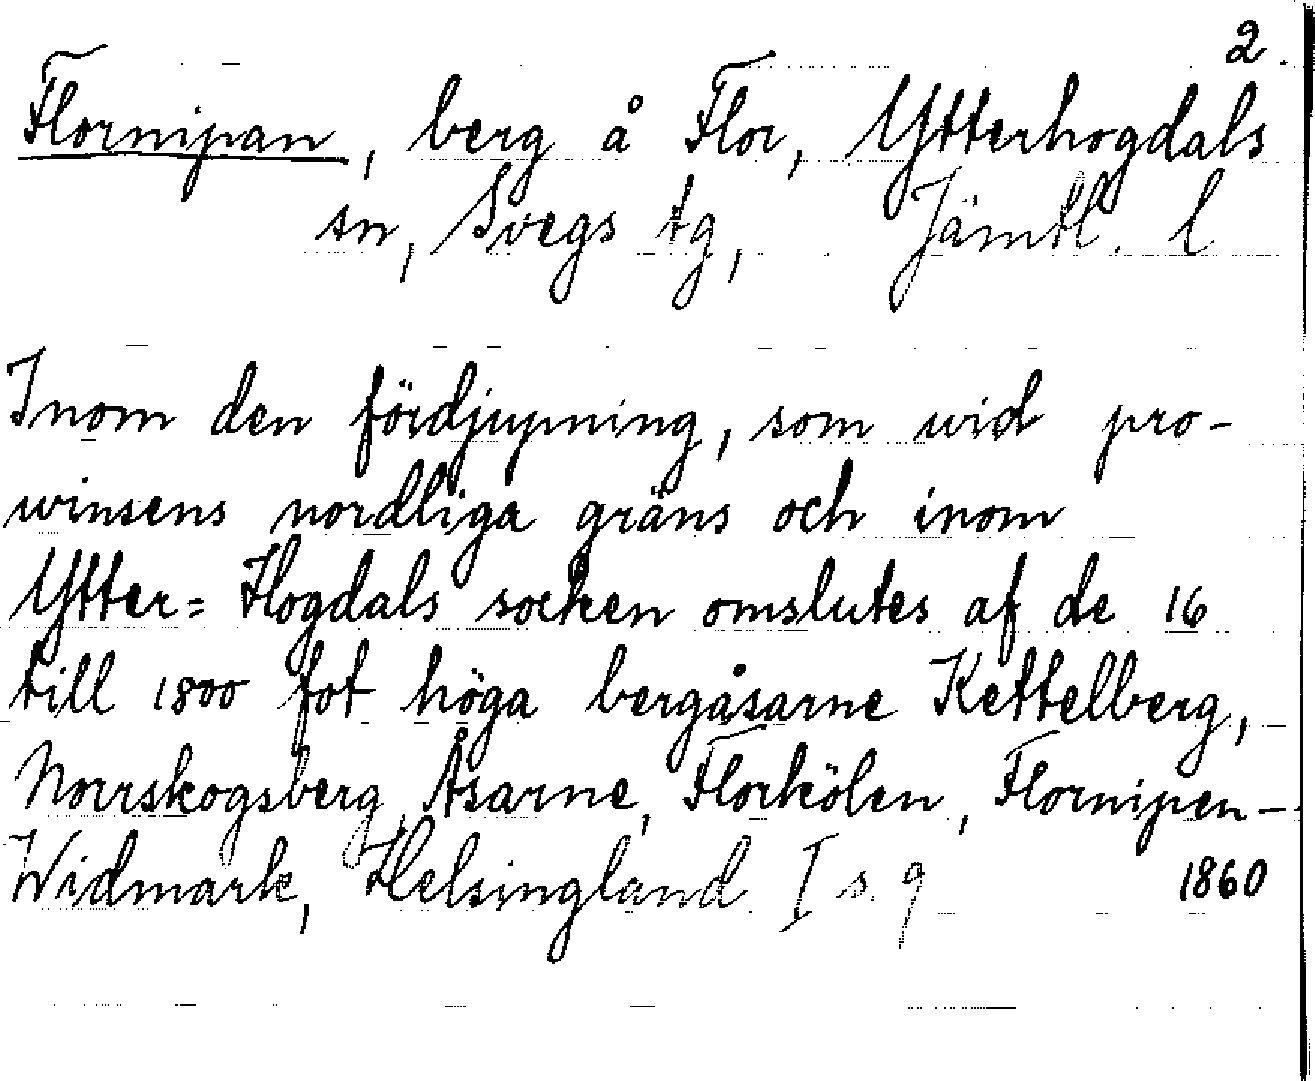 2.
Flornipan, berg å Flor, Ytterhogdals
sn, Svegs tg, Jämtl. l
Inom den fördjupning, som wid pro-
winsens nordliga gräns och inom
Ytter= Hogdals socken omslutes af de 16
till 1800 fot höga bergåsarne Kettelberg,
Norrskogsberg, Åsarne, Florkölen, Flornipen-
Widmark, Helsingland I s. 9 1860